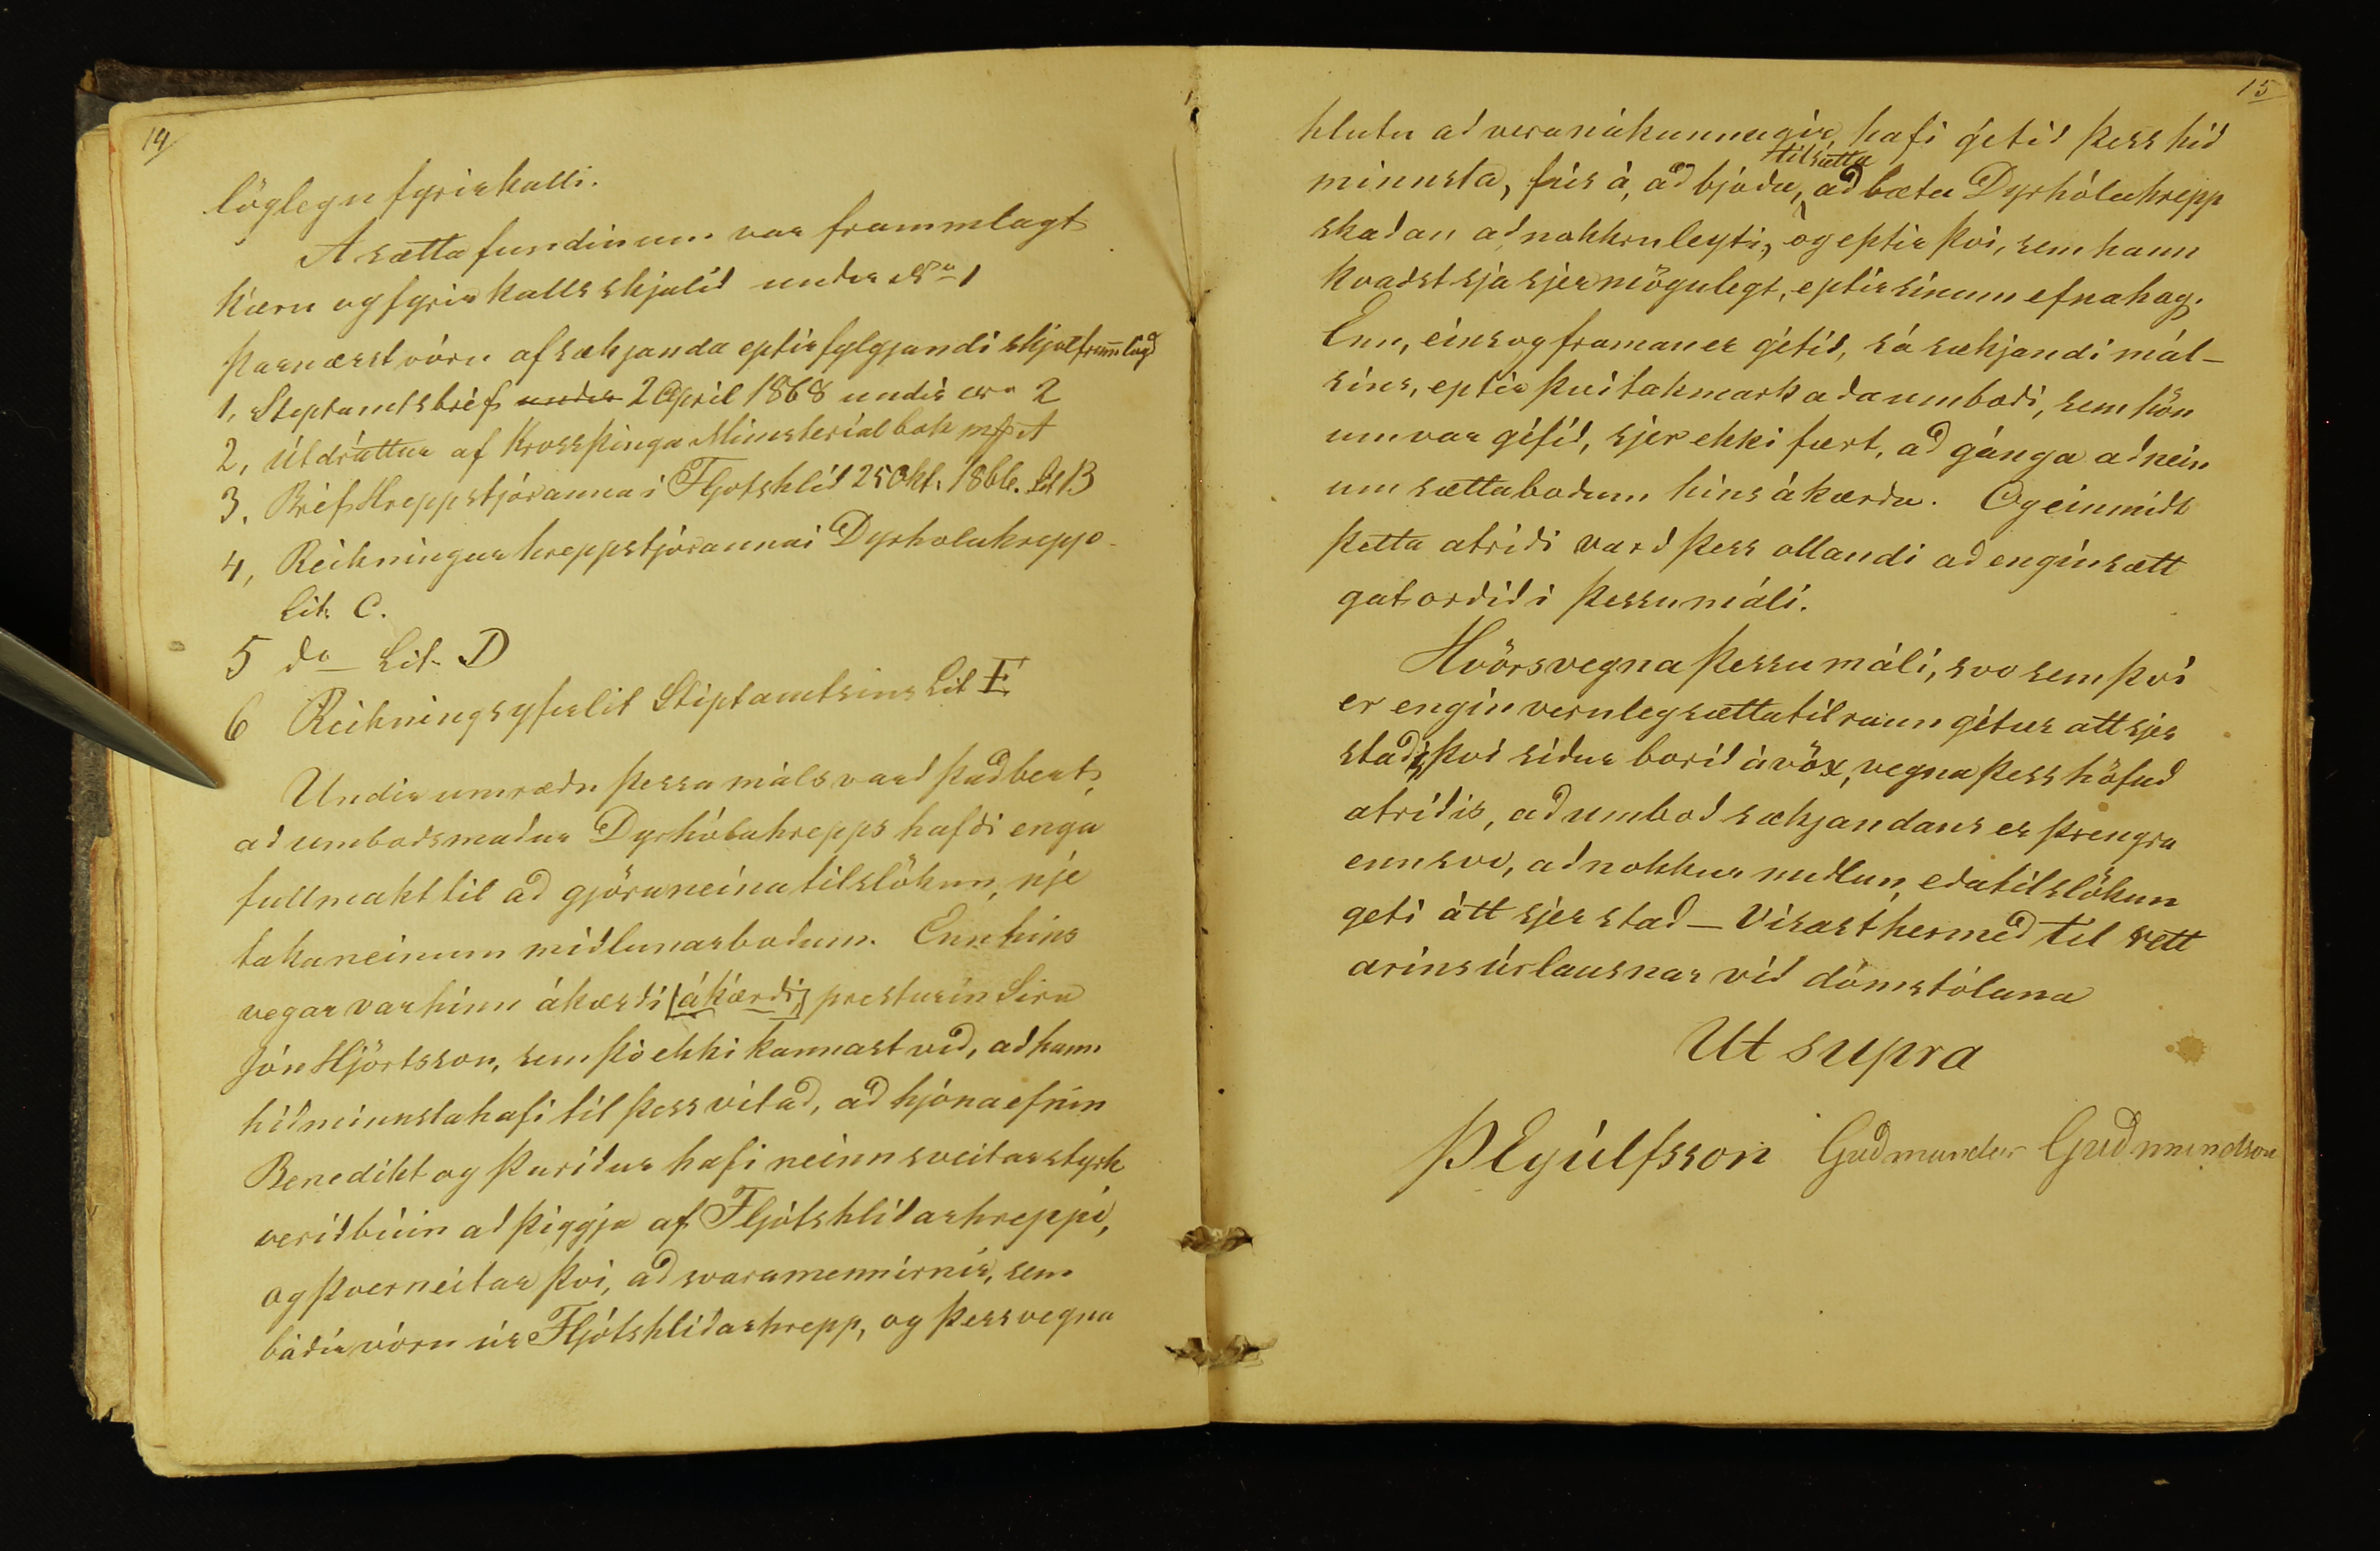 14
löglegu fyrirkalli.
A sættafundinum var frammlagt
kæru og fyrirkallsskjalid undir No 1
Þarnærst vóru af sækjanda eptirfylgjandi skjöl frammlögd
1, Stiptamtsbréf under 2 April 1868 undir No 2
2, Útdráttur af Krossþinga Ministerialbok A
3. Bréf Hreppstjóranna i Fljotshlíd 25 Okt. 1866. Lit B
4, Reikningur hreppstjóranna i Dyrholahrepp
Lit. C.
5 do Lit. D
6 Reikningsyfirlit Stiptamtsins Lit E.
Undir umrædu þessa máls vard þad bert,
ad umbodsmadur Dyrhólahrepps hafdi enga
fullmakt til ad gjöra neina tilslökun, nje
taka neinum midlunarbodum. Enn hins
vegar var hinn ákærdi [ákærdi] presturin Sira
Jón Hjörtsson, sem þó ekki kannast vid, ad hann
hid minnsta hafi til þess vitad, ad hjónaefnin
Benedikt og Þurídur hafi neinn sveitarstyrk
verid búin ad þiggja af Fljótshlídarhreppi,
og þverneitar því, ad svaramennirnir, sem
bádir vóru úr Fljótshlídarhrepp, og þessvegna
15
hlutu ad vera nákunnugir, hafi getid þess hid
til sætta
minnsta, fús á, ad bjóda, ad bæta Dyrhólahrepp
skadan ad nokkruleyti, og eptir því, sem hann
kvadst sjá sjer mögulegt, eptir sínum efnahag.
Enn, eins og framan er gétid, sá sækjandi máls
sins, eptir því takmarkada umbodi, sem hön
um var géfid, sjer ekki fært, ad gánga ad nein
um sættabodum hins ákærda. Og einmidt
þetta atridi vard þess ollandi ad engin sætt
gat ordid i þessu máli.
Hvörsvegna þessu máli, svo sem því
er engin veruleg sættatilraun gétur átt sjer
stad, því sídur borid ávöx, vegna þess höfud
atridis, ad umbod sækjandans er þrengra
enn svo, ad nokkur midlun, eda tilslökun
geti átt sjer stad – Vísast hermed til rett
arins úrlausnar vid dómstólana
Ut supra
ÞEyúlfsson Gudmundur Gudmundson